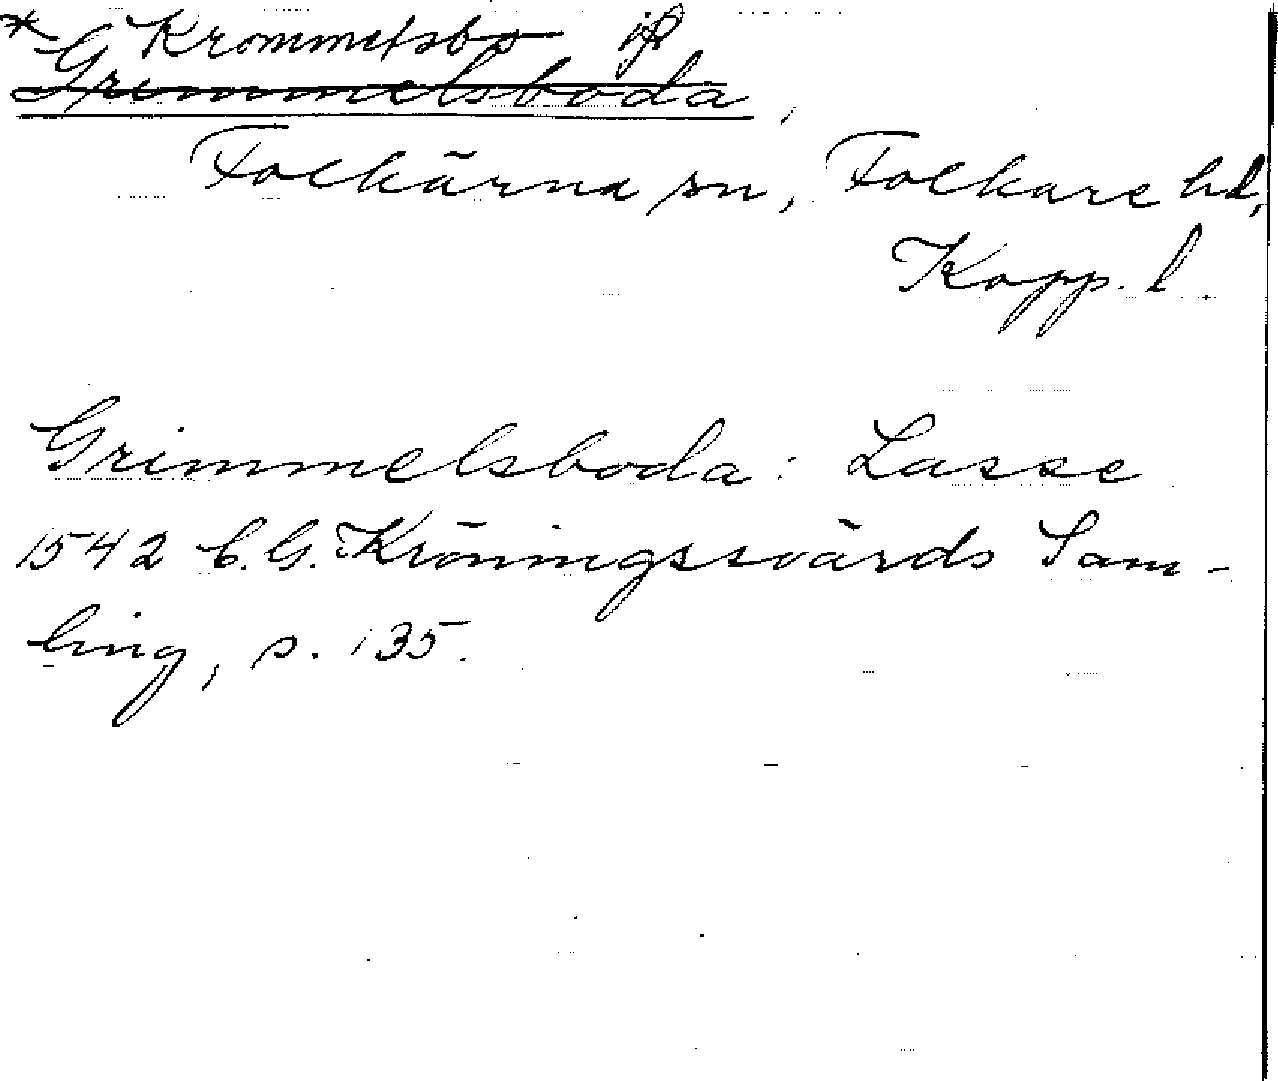 * Krommelsbo
Grimmelsboda,
Folkärna sn, Folkare hd,
Kopp. l.
Grimmelsboda: Lasse
1542 C. G. Kröningssvärds Sam-
ling, s. 135.